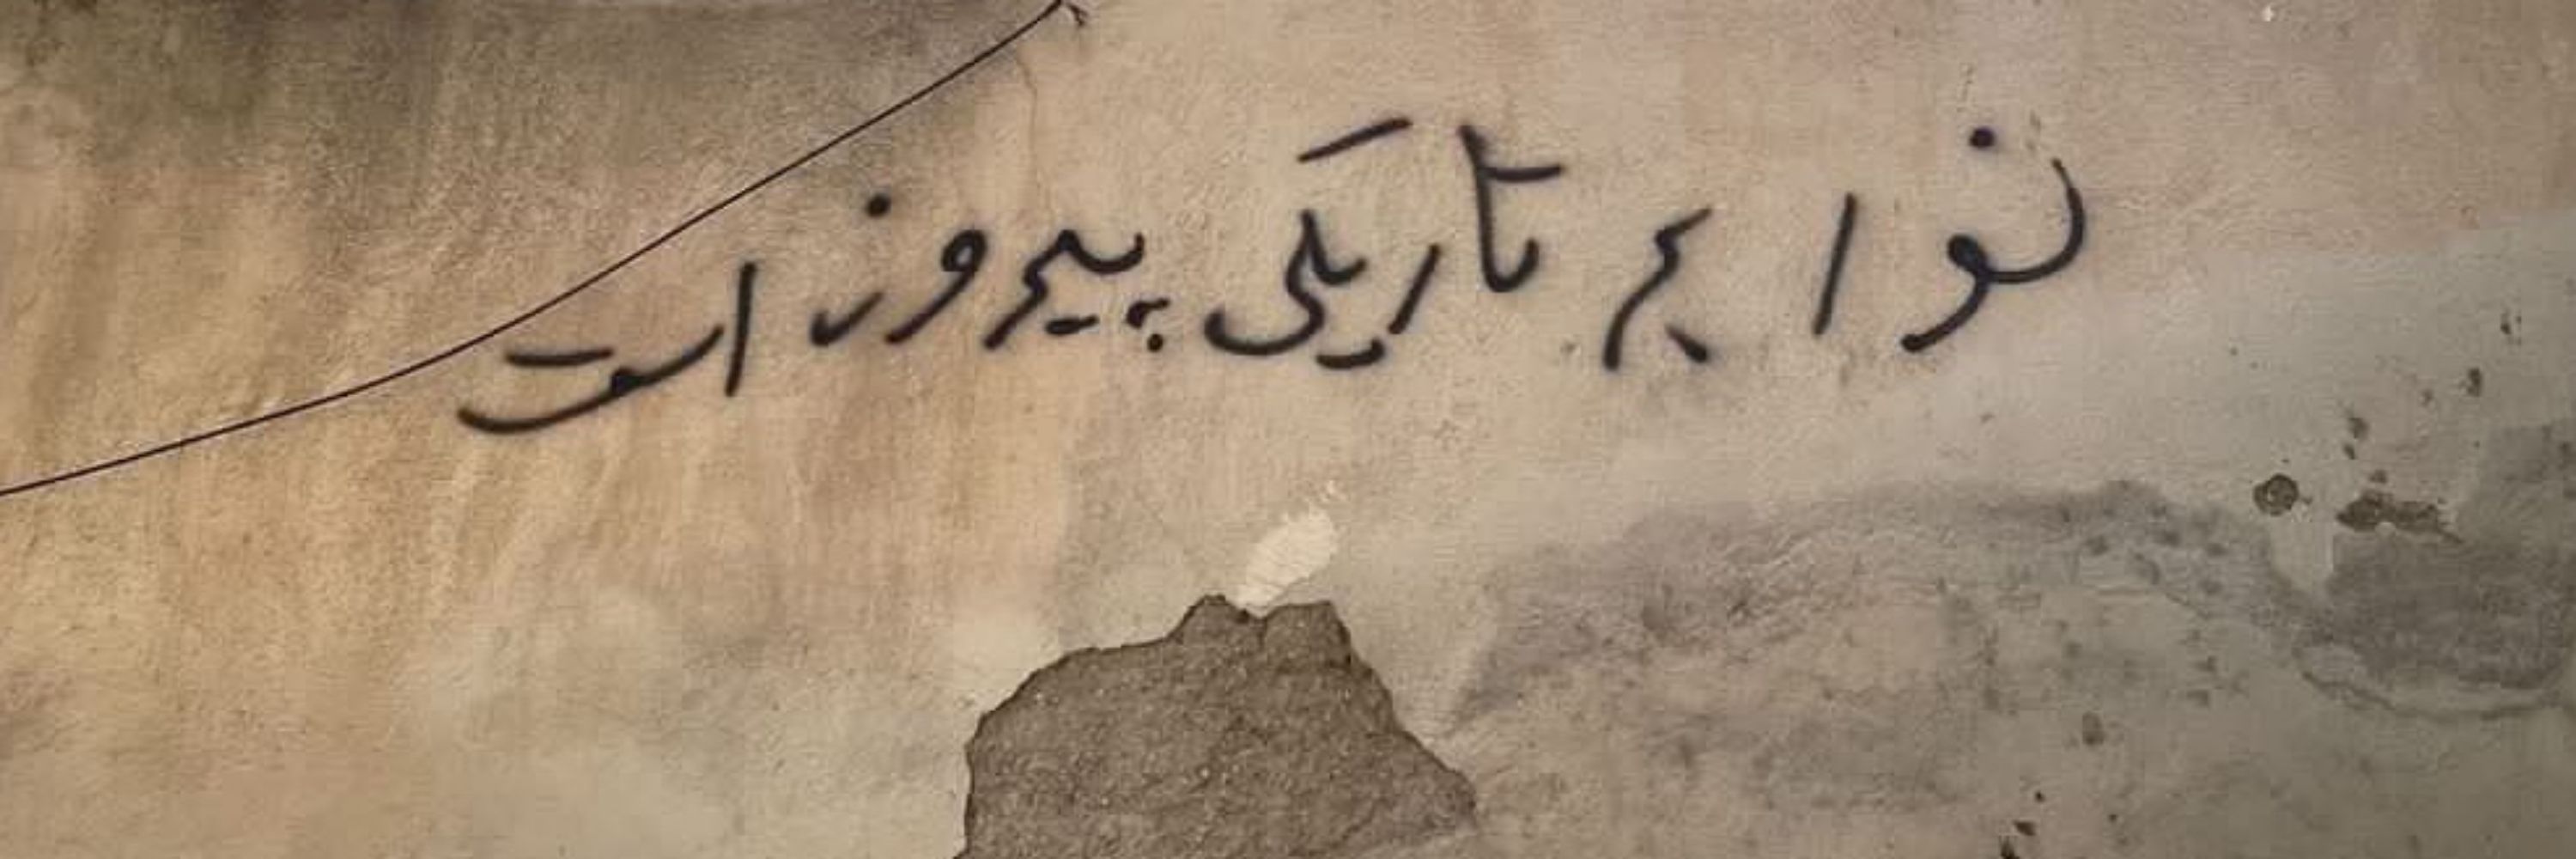 نور بر تاریکی پیروز است